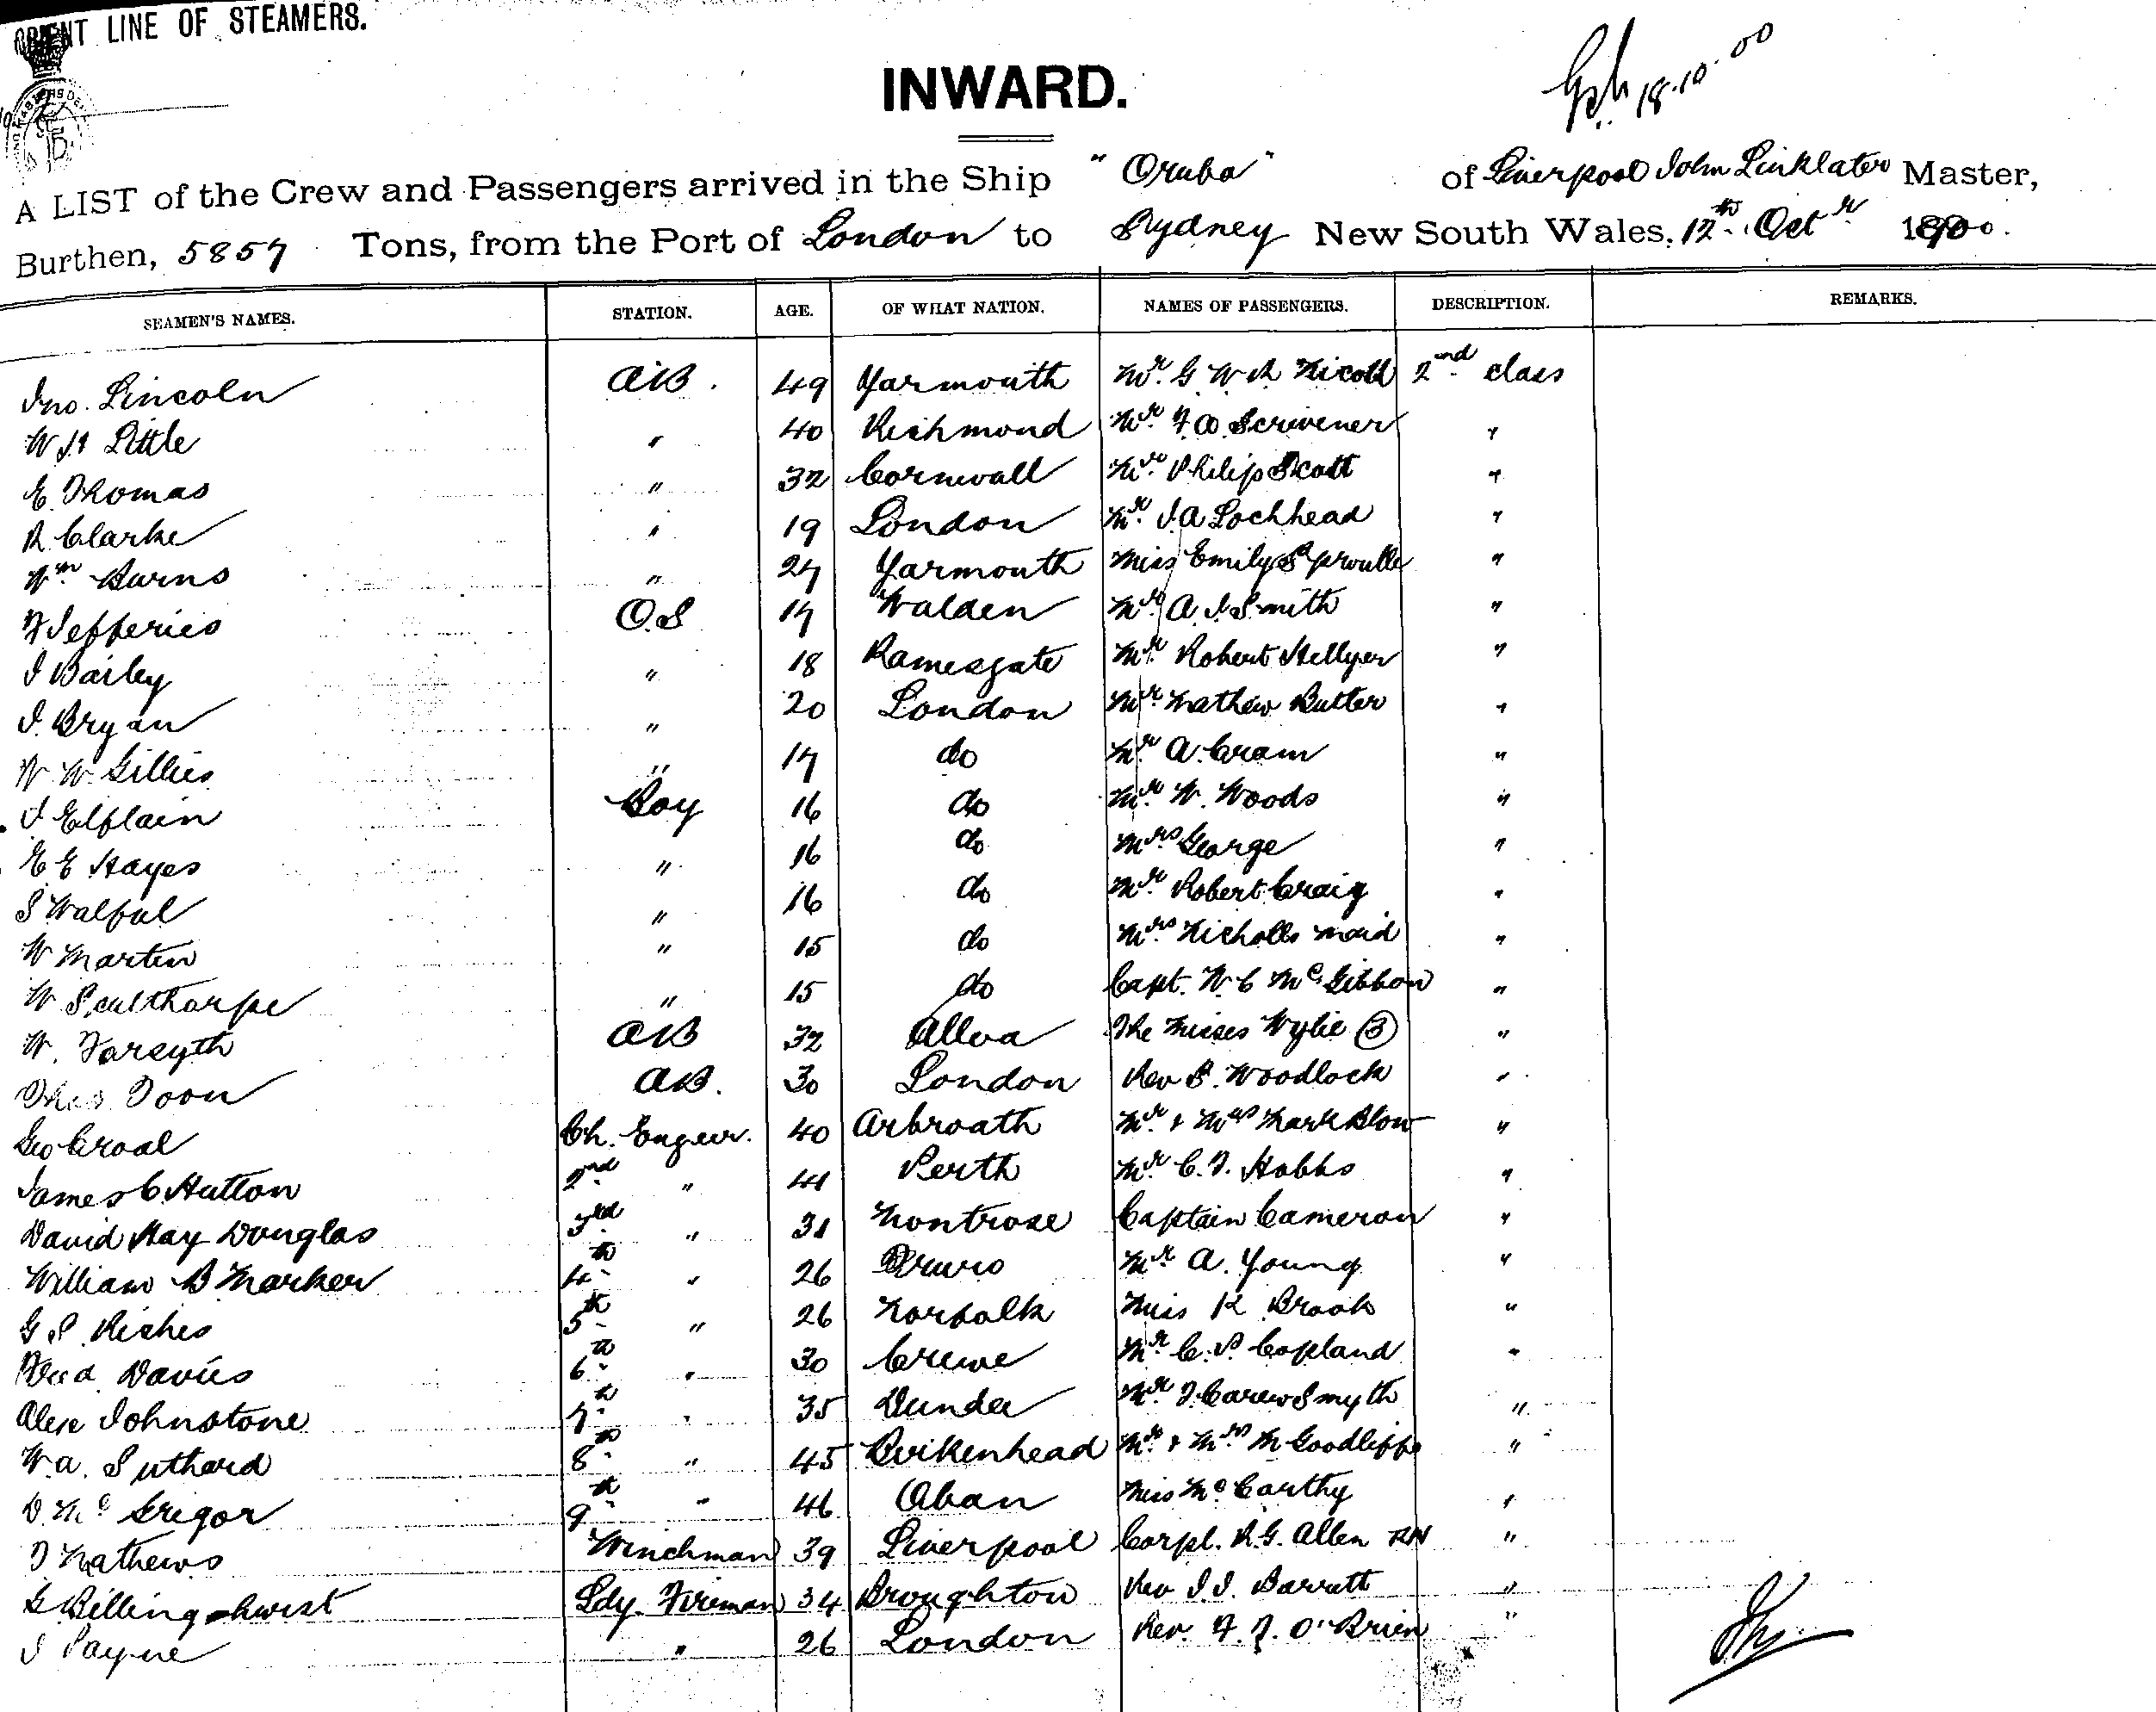 ORIENT LINE OF STEAMERS.
18.10.00
INWARD.
A LIST of the Crew and Passengers arrived in the Ship "Oruba" of Liverpool John Linklater Master,
Burthen, 5857 Tons, from the Port of London to Sydney New South Wales, 12th Octr 1900.
SEAMEN'S NAMES. STATION. AGE. OF WHAT NATION. NAMES OF PASSENGERS. DESCRIPTION. REMARKS.
Jno. Lincoln A.B. 49 Yarmouth Mr. G W R Nicoll 2nd class
W H Little " 40 Richmond Mr. F. W. Scrivener "
E. Thomas " 32 Cornwall Mr. Philip Scott "
R. Clarke " 19 London Mr. J. A Lochhead "
Wm Burns " 27 Yarmouth Miss Emily Sproulle "
F Jefferies O.S 17 Walden Mr. A. J. Smith "
J Bailey " 18 Ramesgate Mr Robert Hellyer "
J. Bryan " 20 London Mr Mathew Butter "
W W Gillies " 17 do Mr A. Cram "
J Elflain Boy 16 do Mr W. Woods "
E E Hayes " 16 do Mrs George "
S Walful " 16 do Mr. Robert Craig "
W Martin " 15 do Mrs Nicholls maid "
W Sculthorpe " 15 do Capt. W. C McGibbon "
W. Forsyth AB 32 Alloa The Misses Wylie (3) "
Thos Toon AB. 30 London Rev B. Woodlock "
Geo Croal Ch. Engeer. 40 Arbroath Mr. & Mrs Mark Blow "
James C Hutton 2nd " 41 Perth Mr C. F. Hobbs "
David Hay Douglas 3rd " 31 Montrose Captain Cameron "
William B Marker 4th " 26 Truro Mr A. Young "
G S Riches 5th " 26 Norfolk Miss K Brook "
Fred Davies 6th " 30 Crewe Mr C. S. Copland "
Alex Johnstone 7th " 35 Dundee Mr J. Carew Smyth "
W. A. Suthard 8th " 45 Birkenhead Mr. & Mrs M Goodliffe "
D. McGrigor 9th " 46 Oban Miss McCarthy "
J Mathews Winchman 39 Liverpool Corpl. R. G. Allen RN "
G Billingshurst Ldg. Fireman 34 Broughton Rev J. J. Barrett "
J Payne " 26 London Rev. F. J. O'Brien "